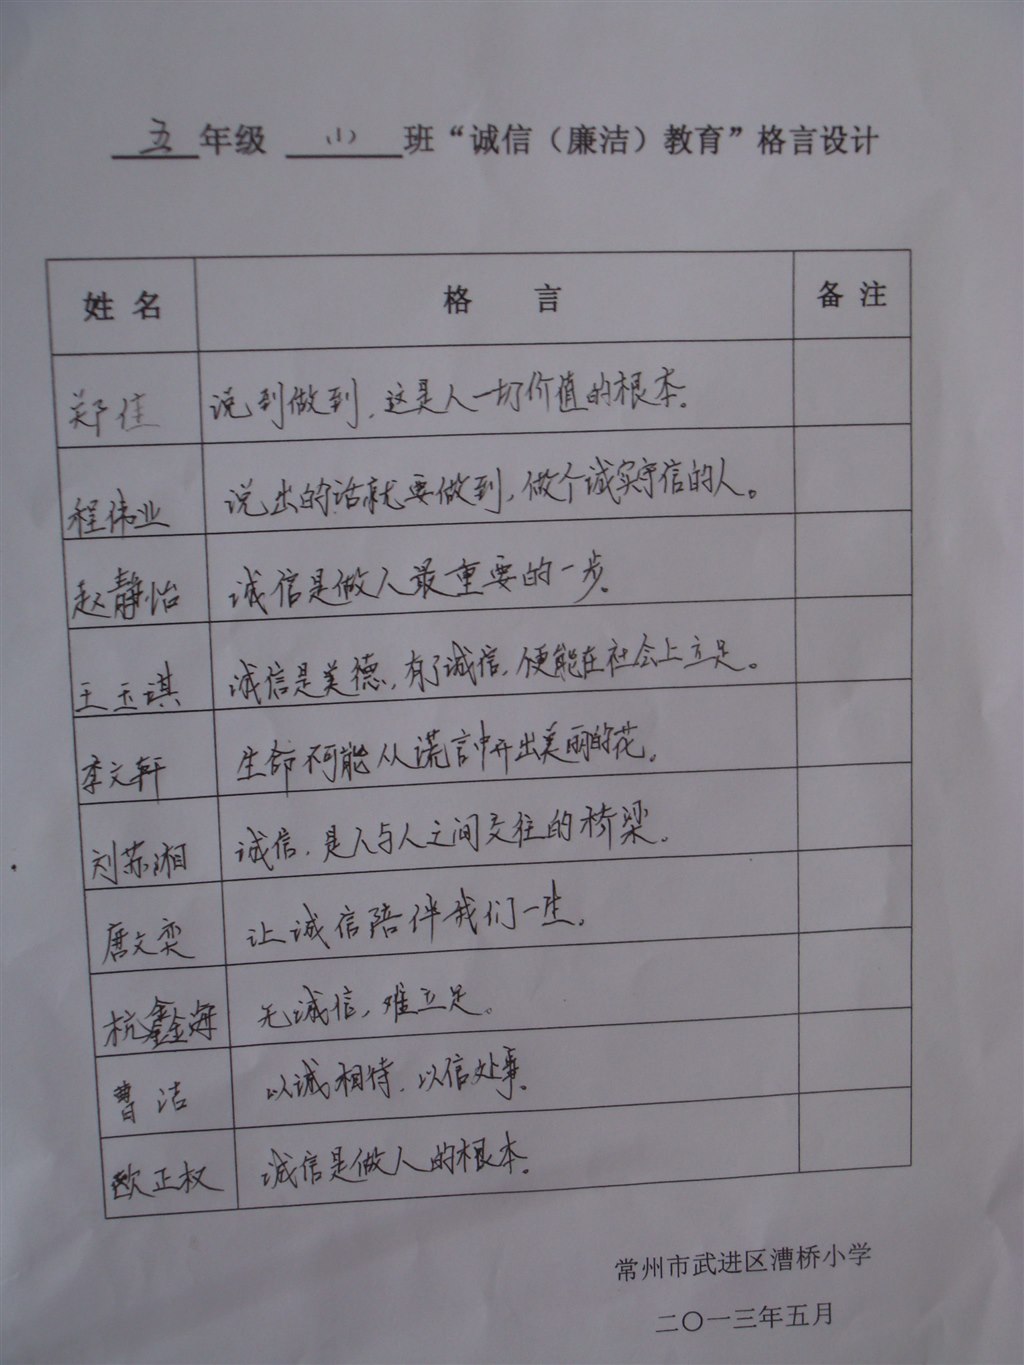 五年级 (1) 班“诚信（廉洁）教育”格言设计
姓名 格言 备注
郑佳 说到做到，这是人一切价值的根本。
程伟业 说出的话就要做到，做个诚实守信的人。
赵静怡 诚信是做人最重要的一步。
王玉琪 诚信是美德，有了诚信，便能在社会上立足。
李文轩 生命不可能从谎言中开出美丽的花。
刘苏湘 诚信，是人与人之间交往的桥梁。
唐文奕 让诚信陪伴我们一生。
杭鑫海 无诚信，难立足。
曹洁 以诚相待，以信处事。
欧正权 诚信是做人的根本。
常州市武进区漕桥小学
二〇一三年五月